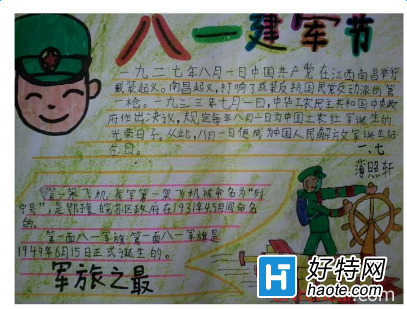 八一建军节
一九二七年八月一日中国共产党在江西南昌举行
武装起义。南昌起义,打响了武装反抗国民党反动派的第
一枪。一九三三年七月一日,中华工农民主共和国中央政
府作出决议,规定每年八月一日为中国工农红军诞生的
光荣日子。从此,八月一日便成为中国人民解放军诞生纪
念日。
一、七
薄照轩
第一架飞机:我军第一架飞机被命名为"列
宁号",是鄂豫皖苏区政府在1931年4.5月间命名
的。
第一面八一军旗:第一面八一军旗是
1949年6月15日正式诞生的。
军旅之最
好特网
haote.com